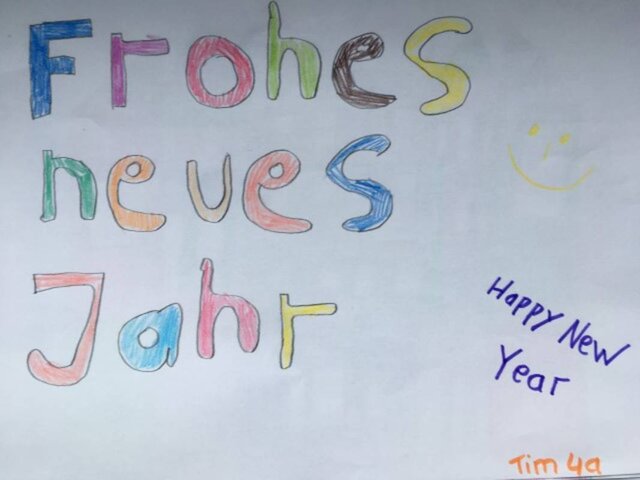 Frohes
neues
Jahr
Happy New
Year
Tim 4a